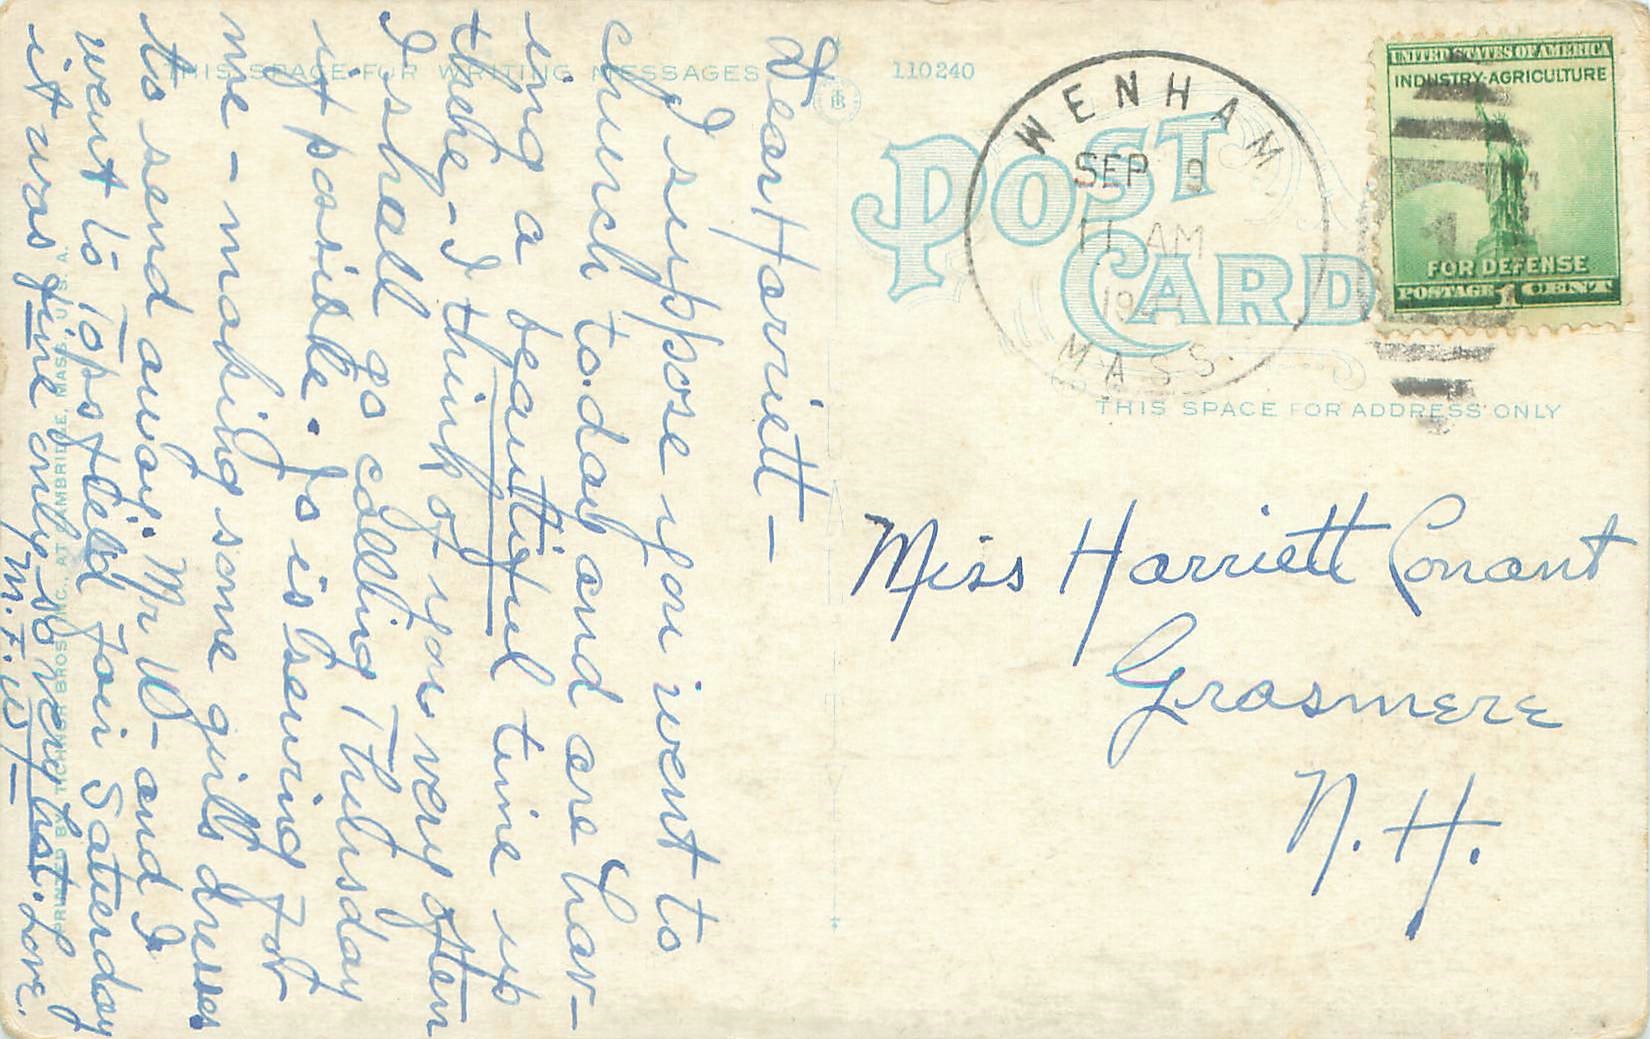 THIS SPACE FOR WRITING MESSAGES
110240
POST
CARD
THIS SPACE FOR ADDRESS ONLY
WENHAM
SEP 9
11 AM
194
MASS.
UNITED STATES OF AMERICA
INDUSTRY-AGRICULTURE
1
FOR DEFENSE
POSTAGE 1 CENT
Dear Harriett –
I suppose you went to
church to-day and are hav-
ing a beautiful time up
there, - I think of you very often
I shall go calling Thursday
if possible. Jo is sewing for
me - making some girls dresses
to send away. Mr W- and I
went to Topsfield Fair Saterday
it was fine only so very hot. Love
M. F. W –
PRINTED BY TICHNOR BROS. INC., AT CAMBRIDGE, MASS., U. S. A.
Miss Harriett Conant
Grasmere
N. H.